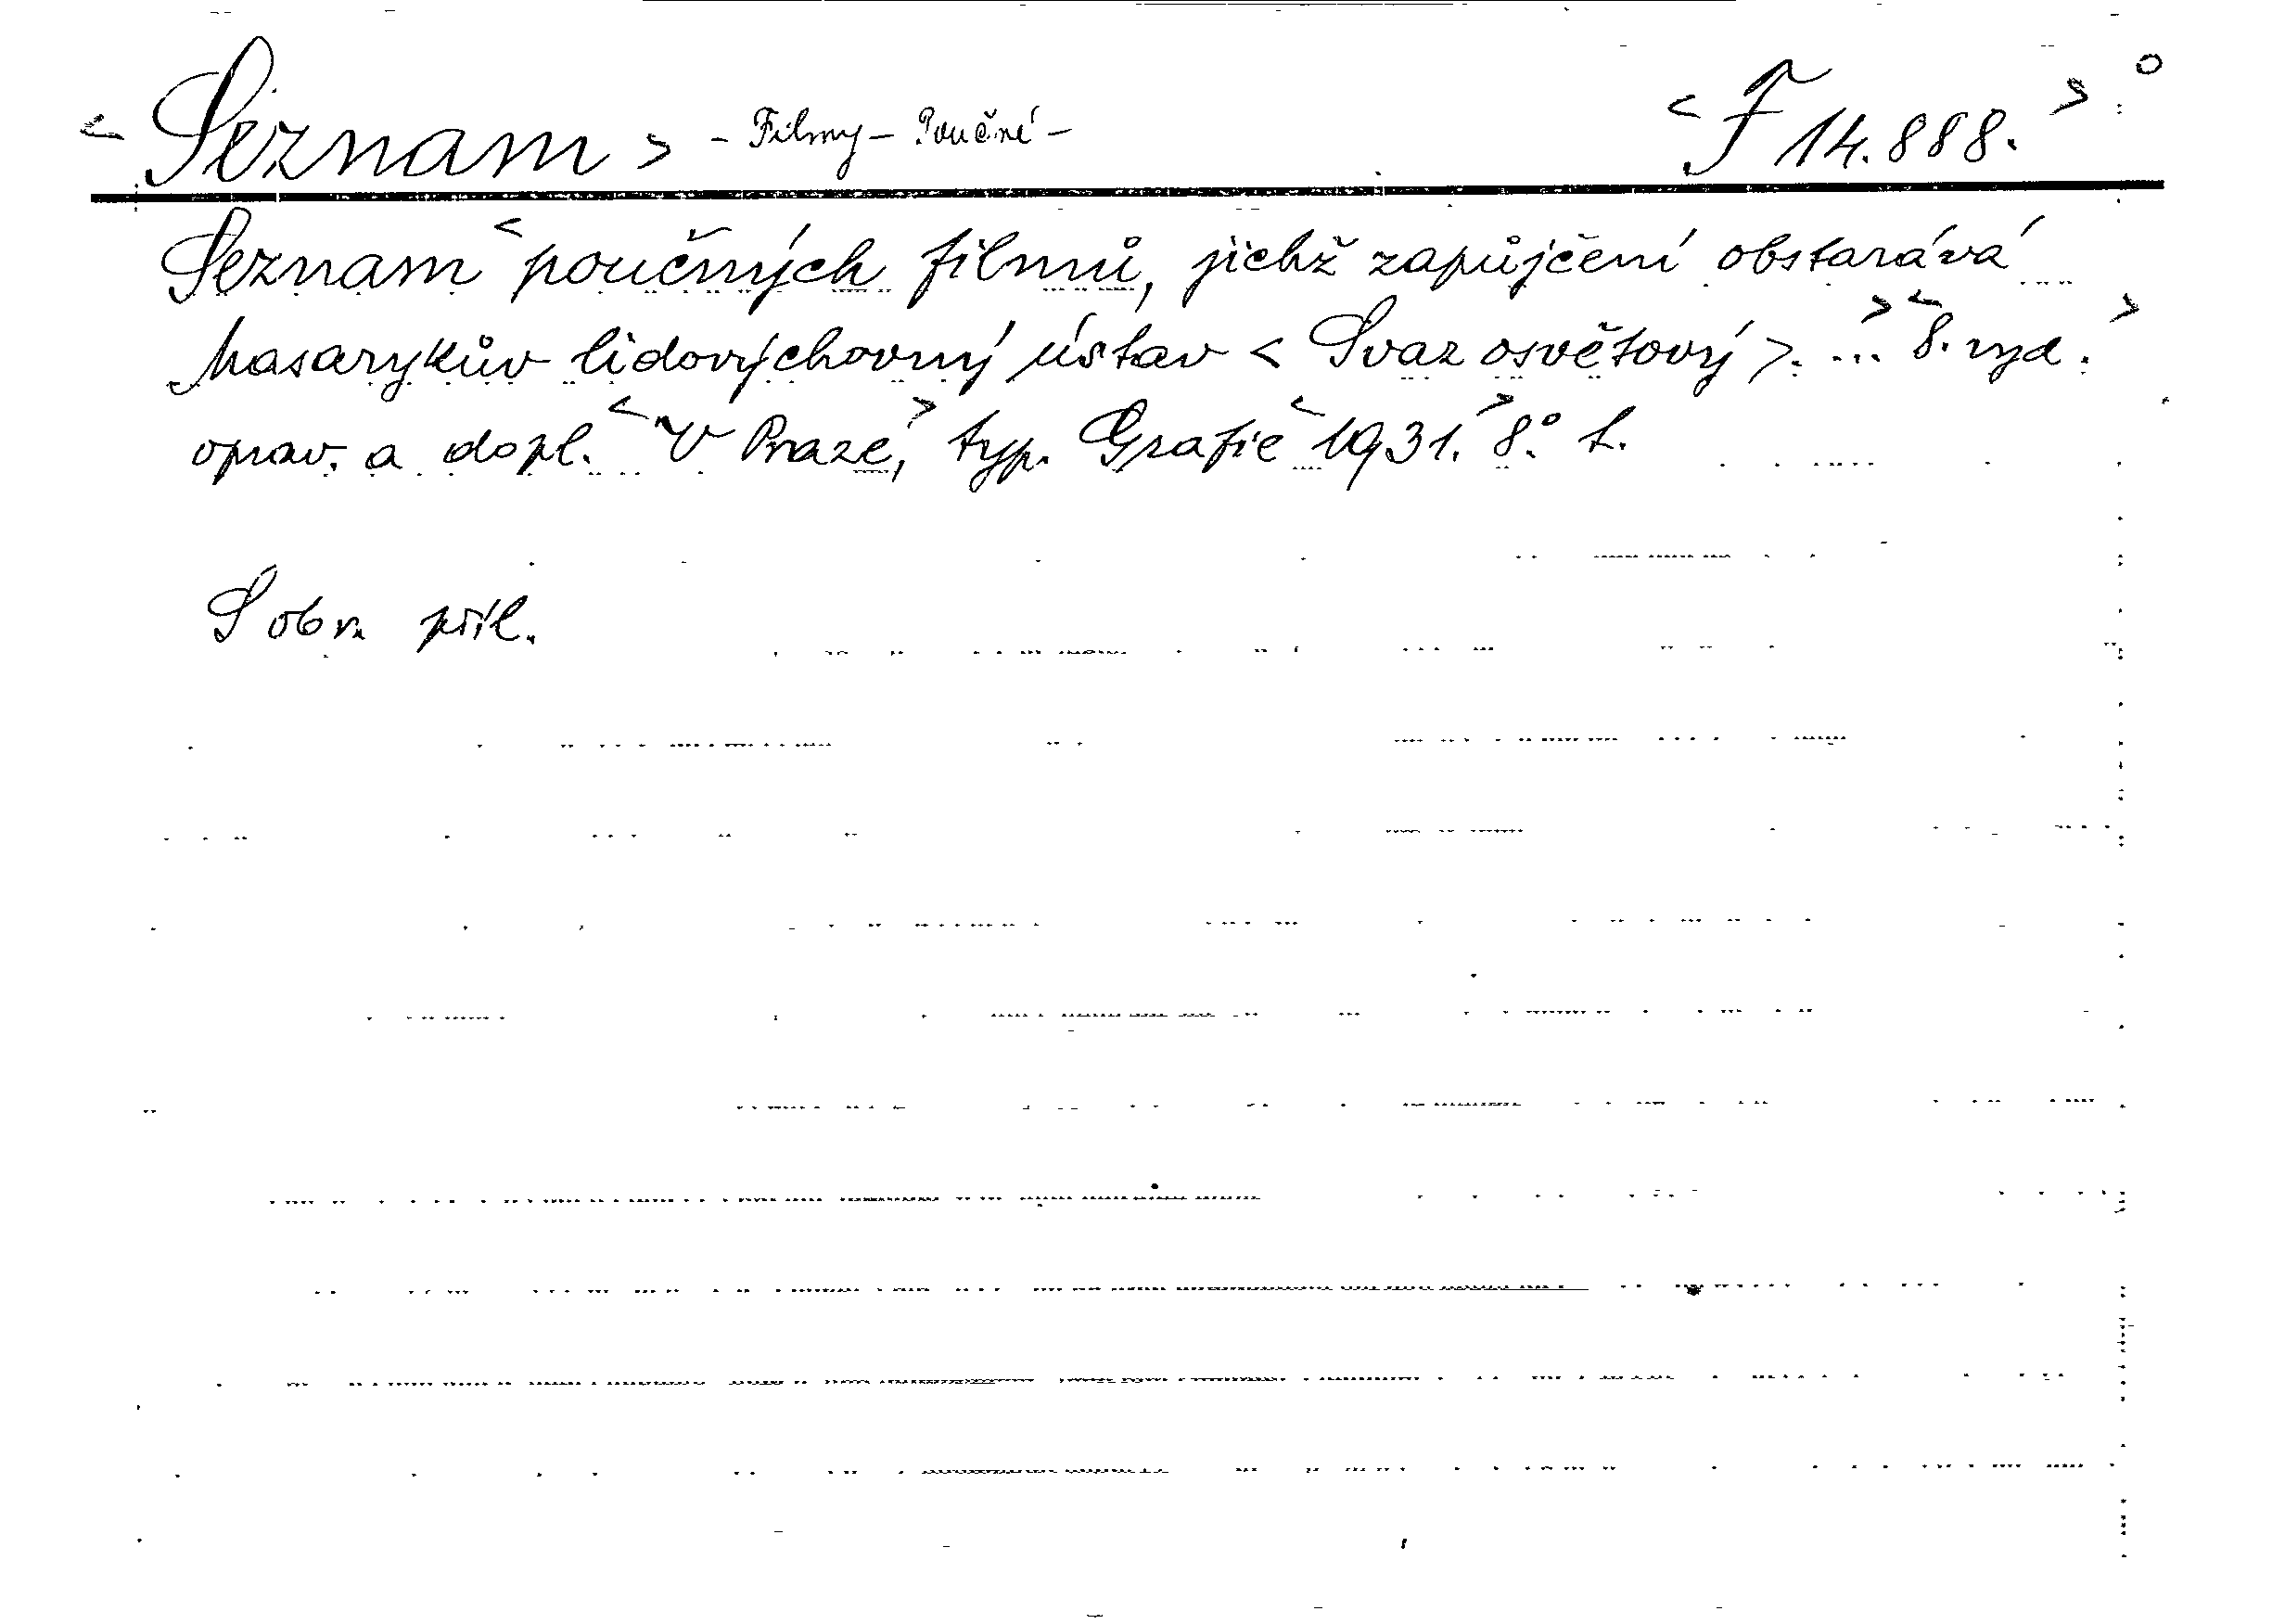 < Seznam > - Filmy - Poučné - < F 14.888. >
Seznam < poučných filmů, jichž zapůjčení obstarává
Masarykův lidovýchovný ústav < Svaz osvětový >. ... > < 8. vyd. >
oprav. a dopl. < V Praze, > typ. Grafie < 1931. > 8.° L.
S obr. příl.